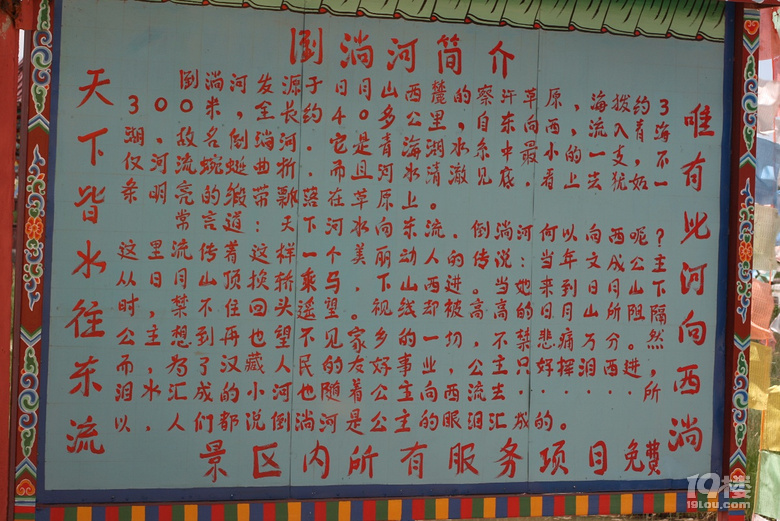 倒淌河简介
天下皆水往东流
倒淌河,发源于日月山西麓的察汗草原,海拔约3
300米,全长约40多公里,自东向西流入青海
湖,故名倒淌河。它是青海湖水系中最小的一支,不
仅河流蜿蜒曲折,而且河水清澈见底,看上去犹如一
条明亮的缎带,飘落在草原上。
常言道:天下河水向东流,倒淌河何以向西呢?
这里流传着这样一个美丽动人的传说:当年文成公主
从日月山顶换轿乘马,下山西进。当她来到日月山下
时,禁不住回头遥望。视线却被高高的日月山阻隔
公主想到再也望不见家乡的一切,不禁悲痛万分。然
而,为了汉藏人民的友好事业,公主只好挥泪西进,
泪水汇成的小河也随着公主向西流去······,所
以,人们都说倒淌河是公主的眼泪汇成的。
唯有此河向西淌
景区内所有服务项目免费
19楼
19lou.com